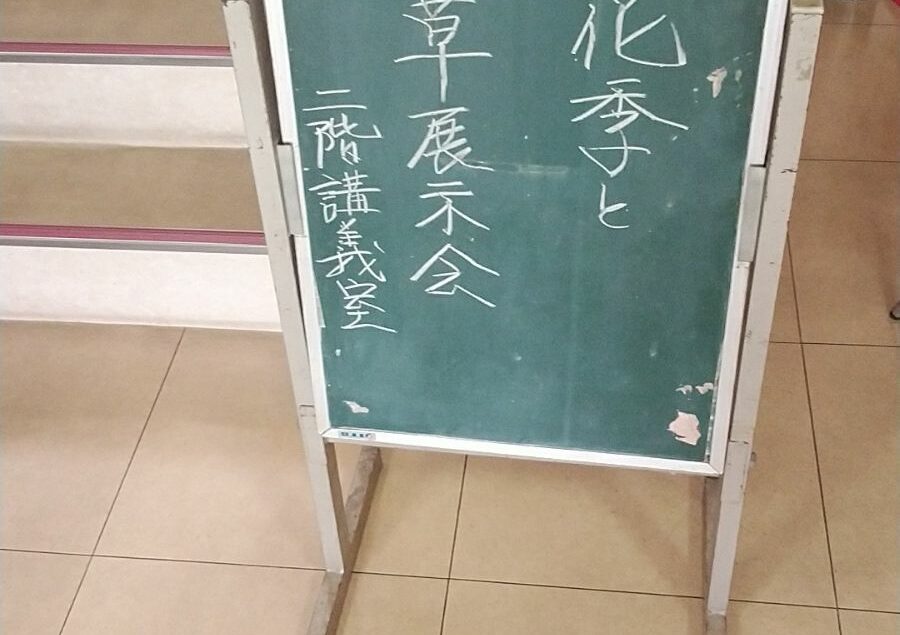 化季と
草展示会
二階講義室